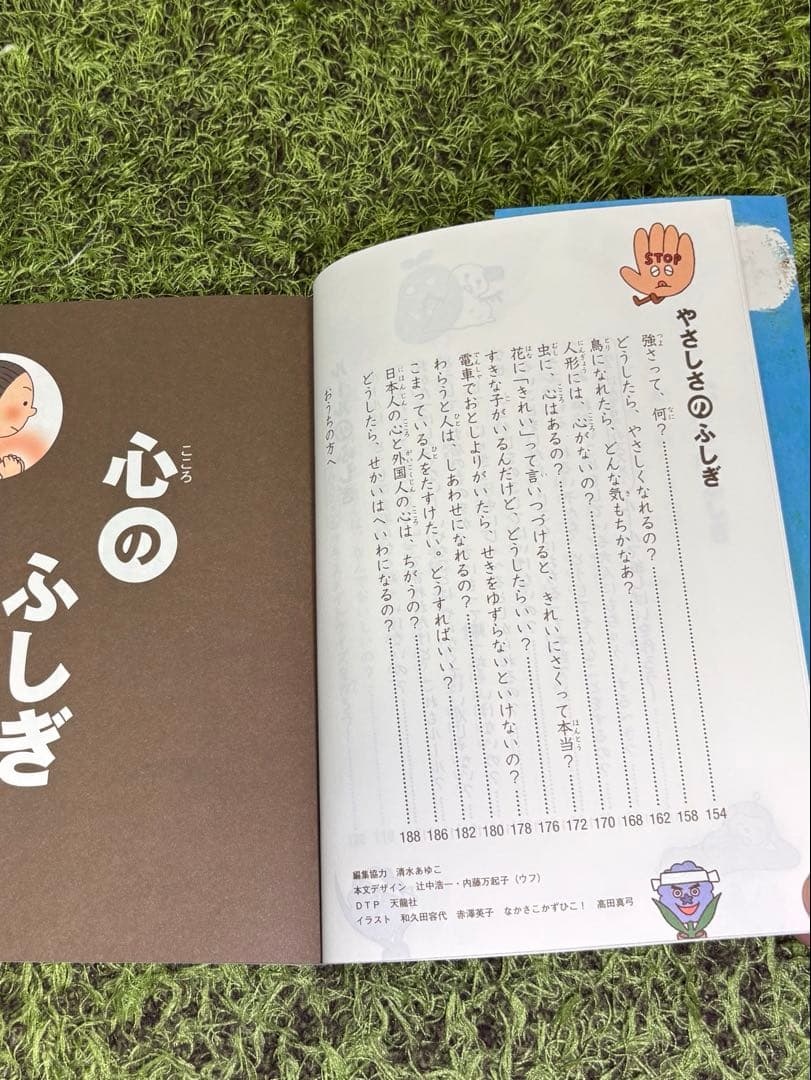 STOP
やさしさのふしぎ
強さって、何？……154
どうしたら、やさしくなれるの？……158
鳥になれたら、どんな気もちかなあ？……162
人形には、心がないの？……168
虫に、心はあるの？……170
花に「きれい」って言いつづけると、きれいにさくって本当？……172
すきな子がいるんだけど、どうしたらいい？……176
電車でおとしよりがいたら、せきをゆずらないといけないの？……178
わらうと人は、しあわせになれるの？……180
こまっている人をたすけたい。どうすればいい？……182
日本人の心と外国人の心は、ちがうの？……186
どうしたら、せかいはへいわになるの？……188
おうちの方へ
編集協力　清水あゆこ
本文デザイン　辻中浩一・内藤万起子（ウフ）
DTP　天龍社
イラスト　和久田容代　赤澤英子　なかさこかずひこ！　高田真弓
心の
ふしぎ